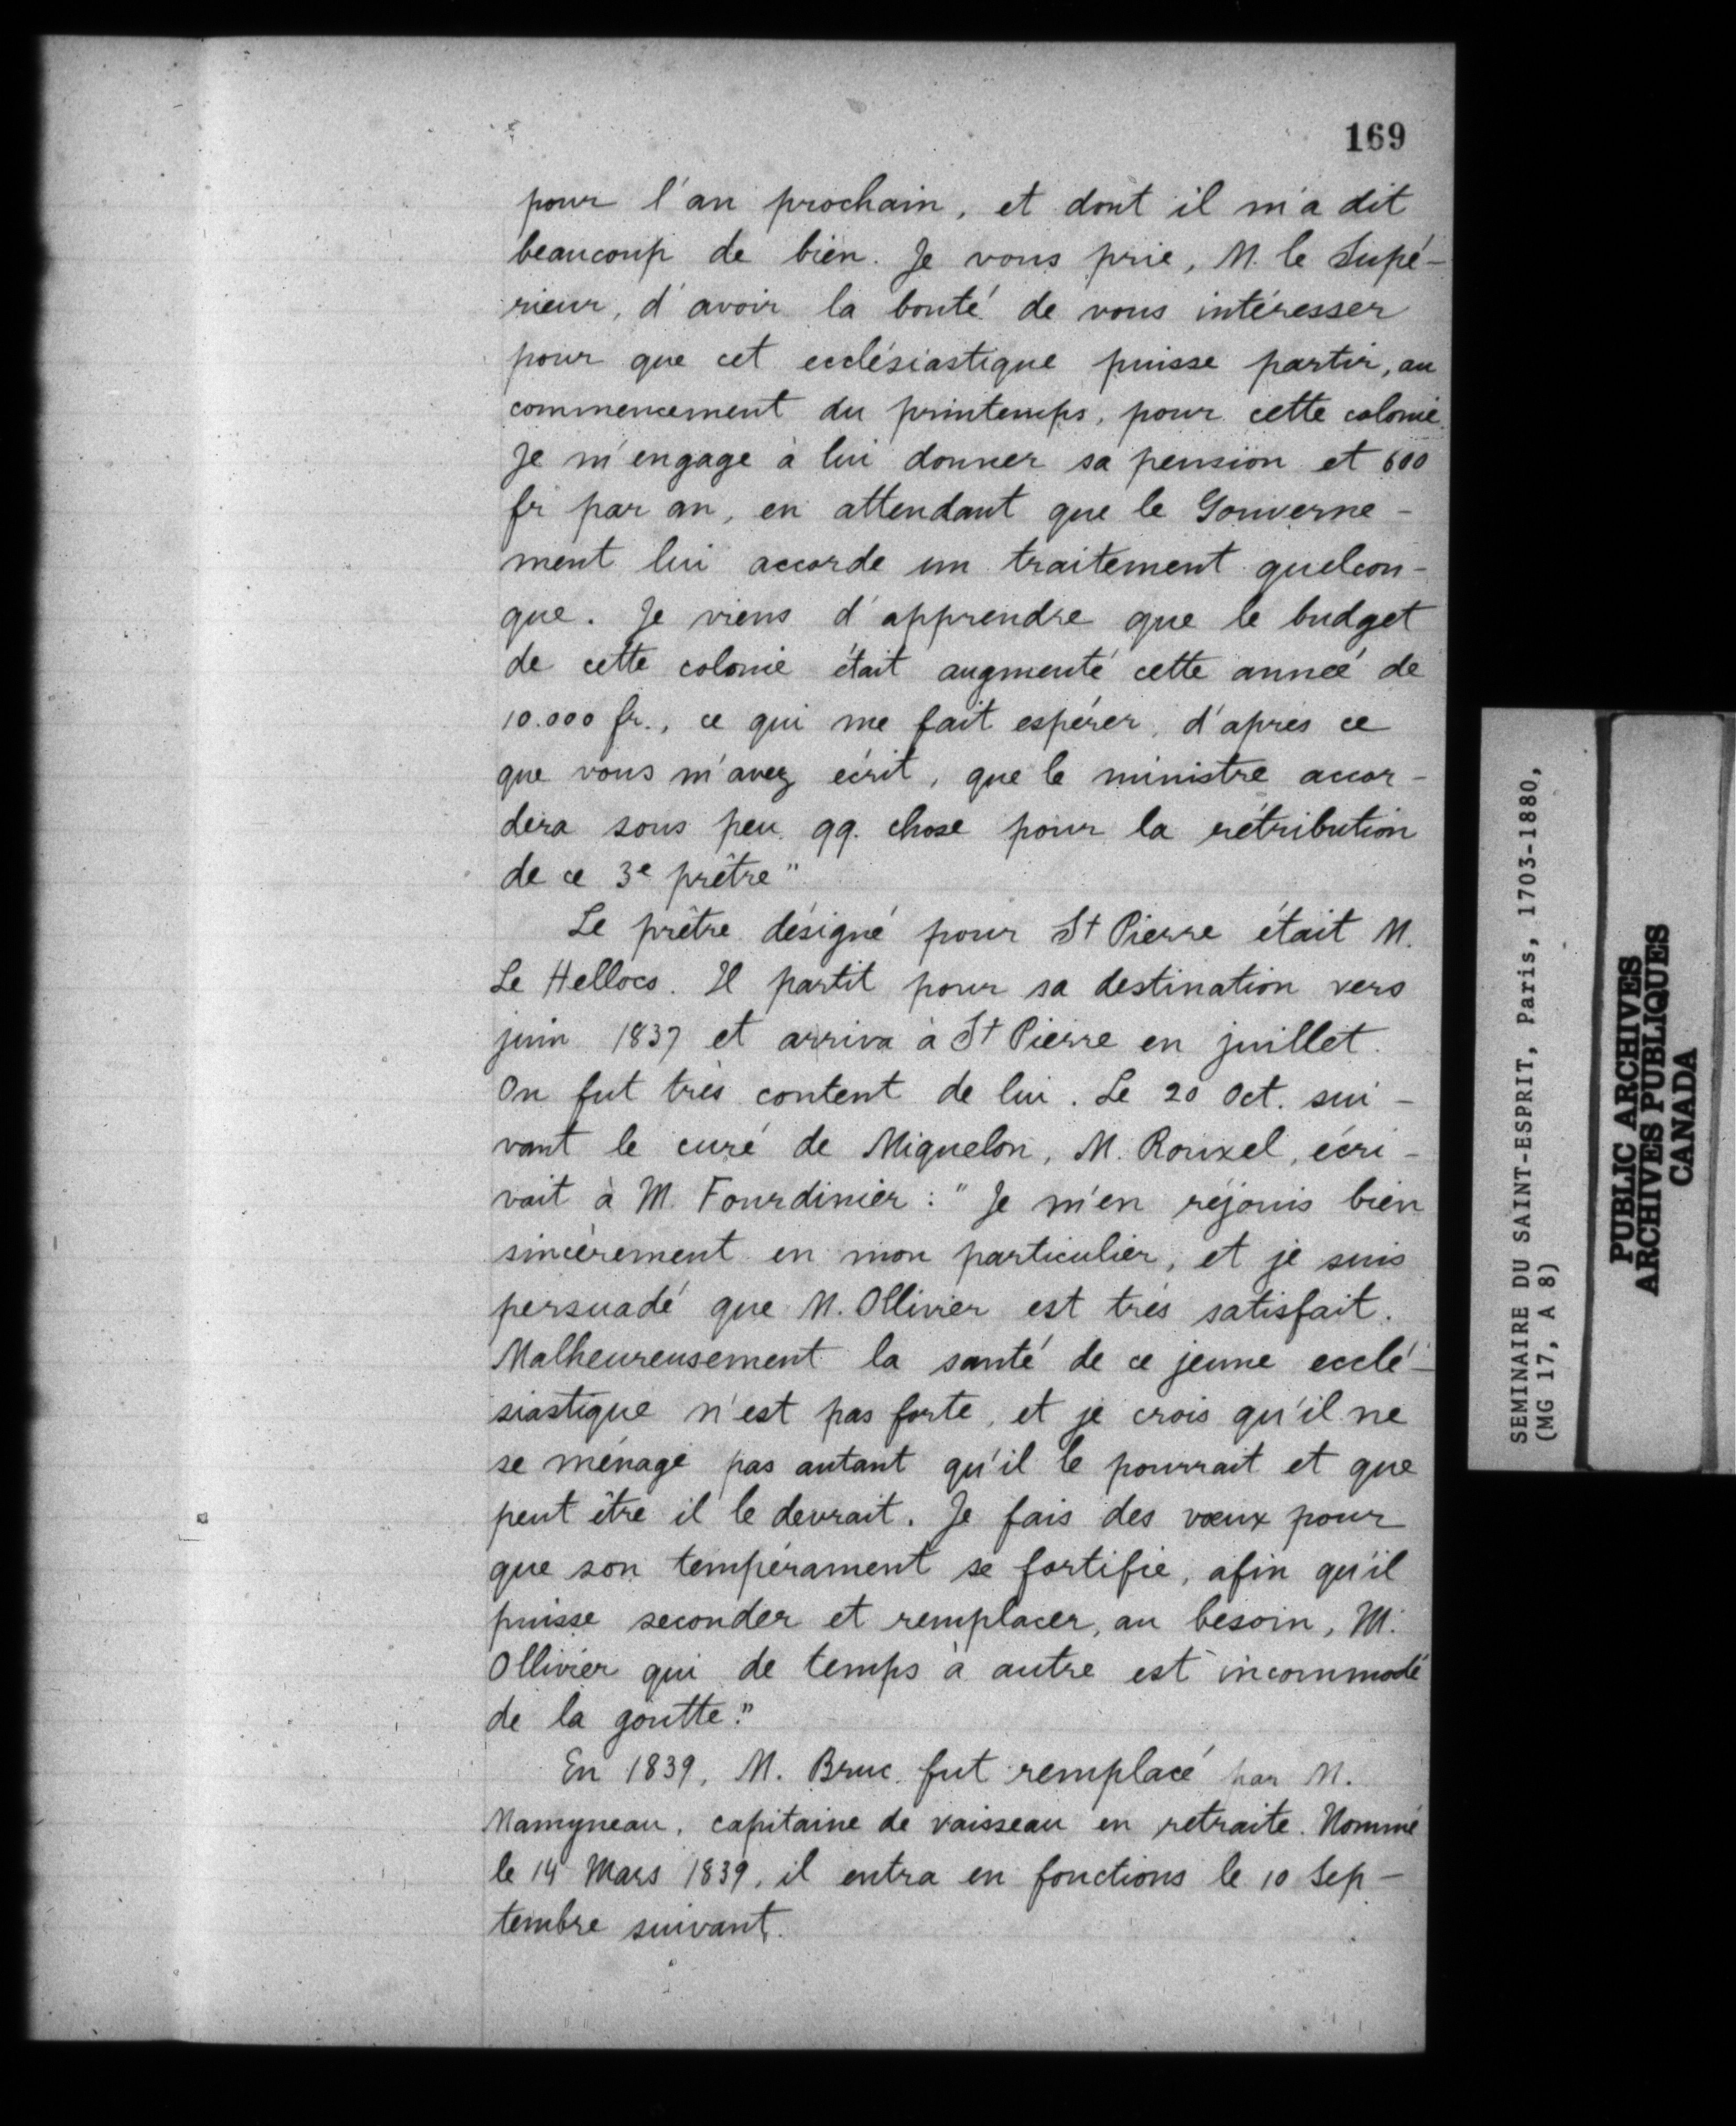 169
pour l'an prochain, et dont il m'a dit
beaucoup de bien. Je vous prie, M. le Supé-
rieur, d'avoir la bonté de vous intéresser
pour que cet ecclésiastique puisse partir, au
commencement du printemps, pour cette colonie.
Je m'engage à lui donner sa pension et 600
fr par an, en attendant que le Gouverne-
ment lui accorde un traitement quelcon-
que. Je viens d'apprendre que le budget
de cette colonie était augmenté cette année de
10.000 fr., ce qui me fait espérer, d'après ce
que vous m'avez écrit, que le ministre accor-
dera sous peu qq. chose pour la rétribution
de ce 3e prêtre"
Le prêtre désigné pour St Pierre était M.
Le Helloco. Il partit pour sa destination vers
juin 1837 et arriva à St Pierre en juillet.
On fut très content de lui. Le 20 Oct. sui-
vant le curé de Miquelon, M. Rouxel, écri-
vait à M. Fourdinier : "Je m'en réjouis bien
sincèrement en mon particulier, et je suis
persuadé que M. Ollivier est très satisfait.
Malheureusement la santé de ce jeune ecclé-
siastique n'est pas forte, et je crois qu'il ne
se ménage pas autant qu'il le pourrait et que
peut être il le devrait. Je fais des vœux pour
que son tempérament se fortifie, afin qu'il
puisse seconder et remplacer, au besoin, M.
Ollivier qui de temps à autre est incommodé
de la goutte."
En 1839, M. Bruc fut remplacé par M.
Mamyneau, capitaine de vaisseau en retraite. Nommé
le 14 Mars 1839, il entra en fonctions le 10 Sep-
tembre suivant.
SEMINAIRE DU SAINT-ESPRIT, Paris, 1703-1880,
(MG 17, A 8)
PUBLIC ARCHIVES
ARCHIVES PUBLIQUES
CANADA